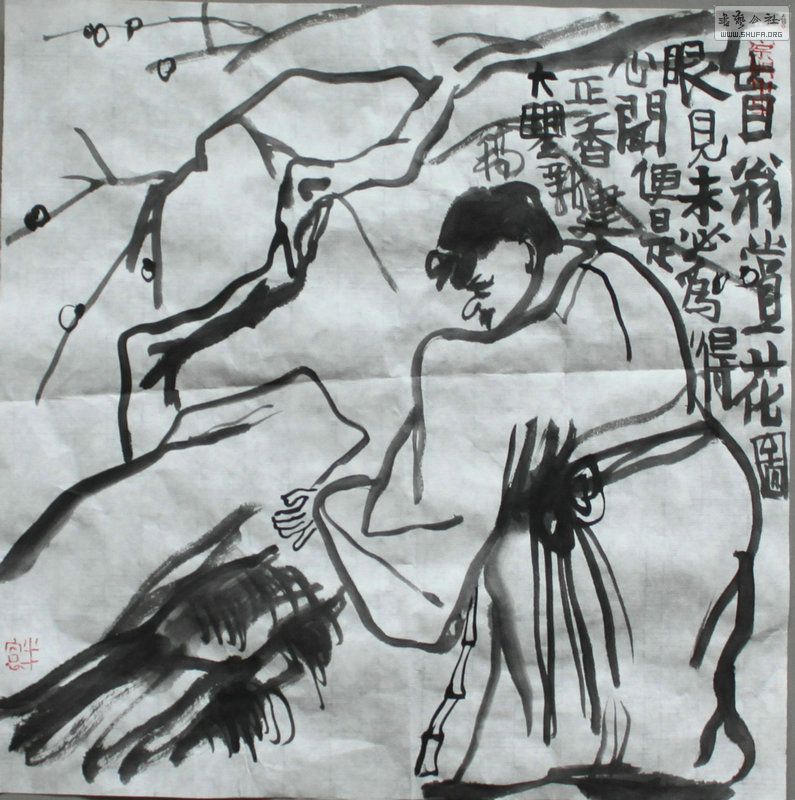 盲翁賞花圖
眼見未必寫得
心聞便是
正香
大豐新建
楊
書藝公社
WWW.SHUFA.ORG